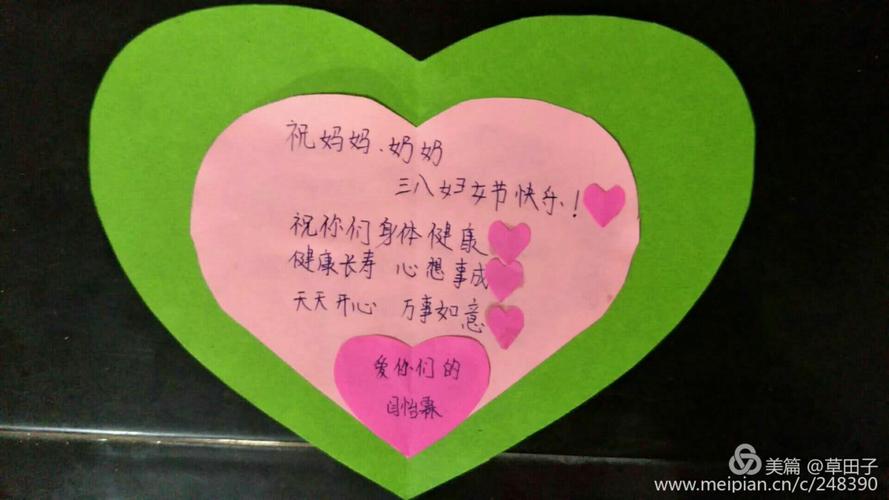 祝妈妈、奶奶
三八妇女节快乐!
祝你们身体健康
健康长寿 心想事成
天天开心 万事如意
爱你们的
闫怡霖
美篇 @草田子
www.meipian.cn/c/248390